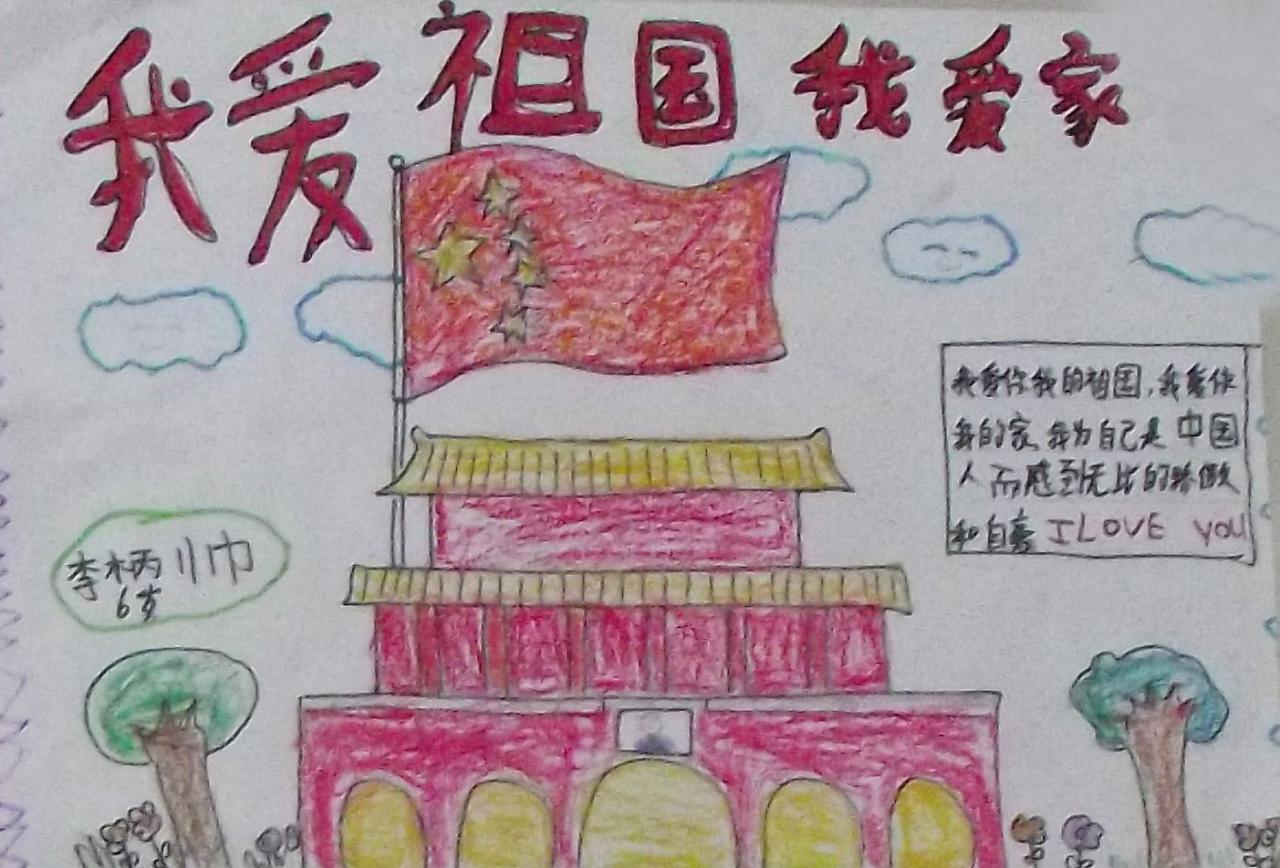 我爱祖国我爱家
我爱你我的祖国,我爱你
我的家,我为自己是中国
人而感到无比的骄傲
和自豪 I LOVE YOU
李柄
6岁